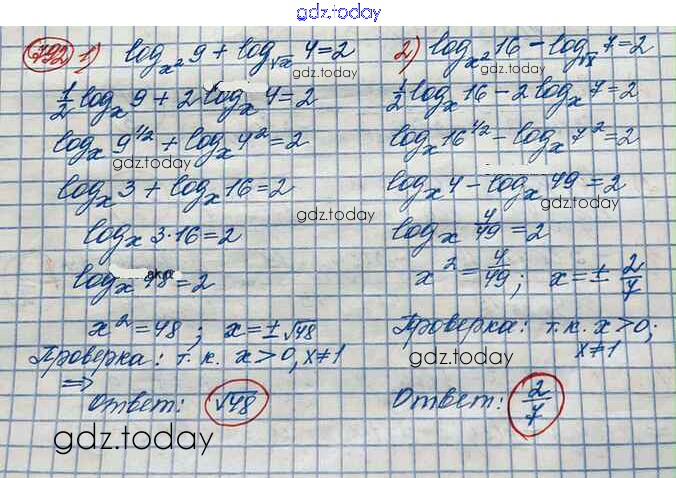 gdz.today
792 1) log_{x²} 9 + log_{√x} 4 = 2
gdz.today
½ log_x 9 + 2 log_x 4 = 2
log_x 9^{1/2} + log_x 4² = 2
gdz.today
log_x 3 + log_x 16 = 2
gdz.today
log_x 3·16 = 2
log_x 48 = 2
x² = 48 ; x = ± √48
Проверка: т.к. x > 0, x ≠ 1
⇒
Ответ: √48
gdz.today
2) log_{x²} 16 − log_{√x} 7 = 2
gdz.today
½ log_x 16 − 2 log_x 7 = 2
log_x 16^{1/2} − log_x 7² = 2
log_x 4 − log_x 49 = 2
gdz.today
log_x 4/49 = 2
x² = 4/49 ; x = ± 2/7
Проверка: т.к. x > 0;
x ≠ 1
gdz.today
Ответ: 2/7
gdz.today